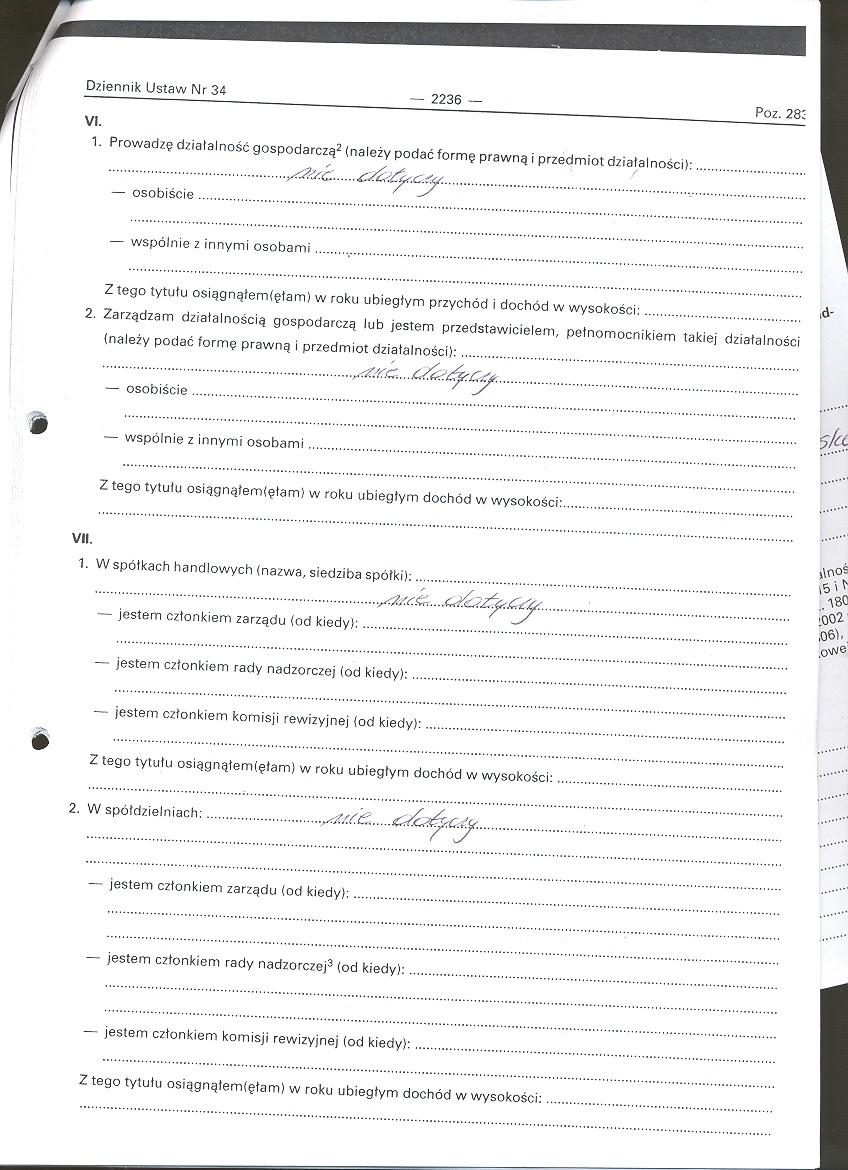 Dziennik Ustaw Nr 34
— 2236 —
Poz. 283
VI.
1. Prowadzę działalność gospodarczą² (należy podać formę prawną i przedmiot działalności):
nie dotyczy
— osobiście
— wspólnie z innymi osobami
Z tego tytułu osiągnąłem(ęłam) w roku ubiegłym przychód i dochód w wysokości:
2. Zarządzam działalnością gospodarczą lub jestem przedstawicielem, pełnomocnikiem takiej działalności
(należy podać formę prawną i przedmiot działalności):
nie dotyczy
— osobiście
— wspólnie z innymi osobami
Z tego tytułu osiągnąłem(ęłam) w roku ubiegłym dochód w wysokości:
VII.
1. W spółkach handlowych (nazwa, siedziba spółki):
nie dotyczy
— jestem członkiem zarządu (od kiedy):
— jestem członkiem rady nadzorczej (od kiedy):
— jestem członkiem komisji rewizyjnej (od kiedy):
Z tego tytułu osiągnąłem(ęłam) w roku ubiegłym dochód w wysokości:
2. W spółdzielniach: nie dotyczy
— jestem członkiem zarządu (od kiedy):
— jestem członkiem rady nadzorczej³ (od kiedy):
— jestem członkiem komisji rewizyjnej (od kiedy):
Z tego tytułu osiągnąłem(ęłam) w roku ubiegłym dochód w wysokości: